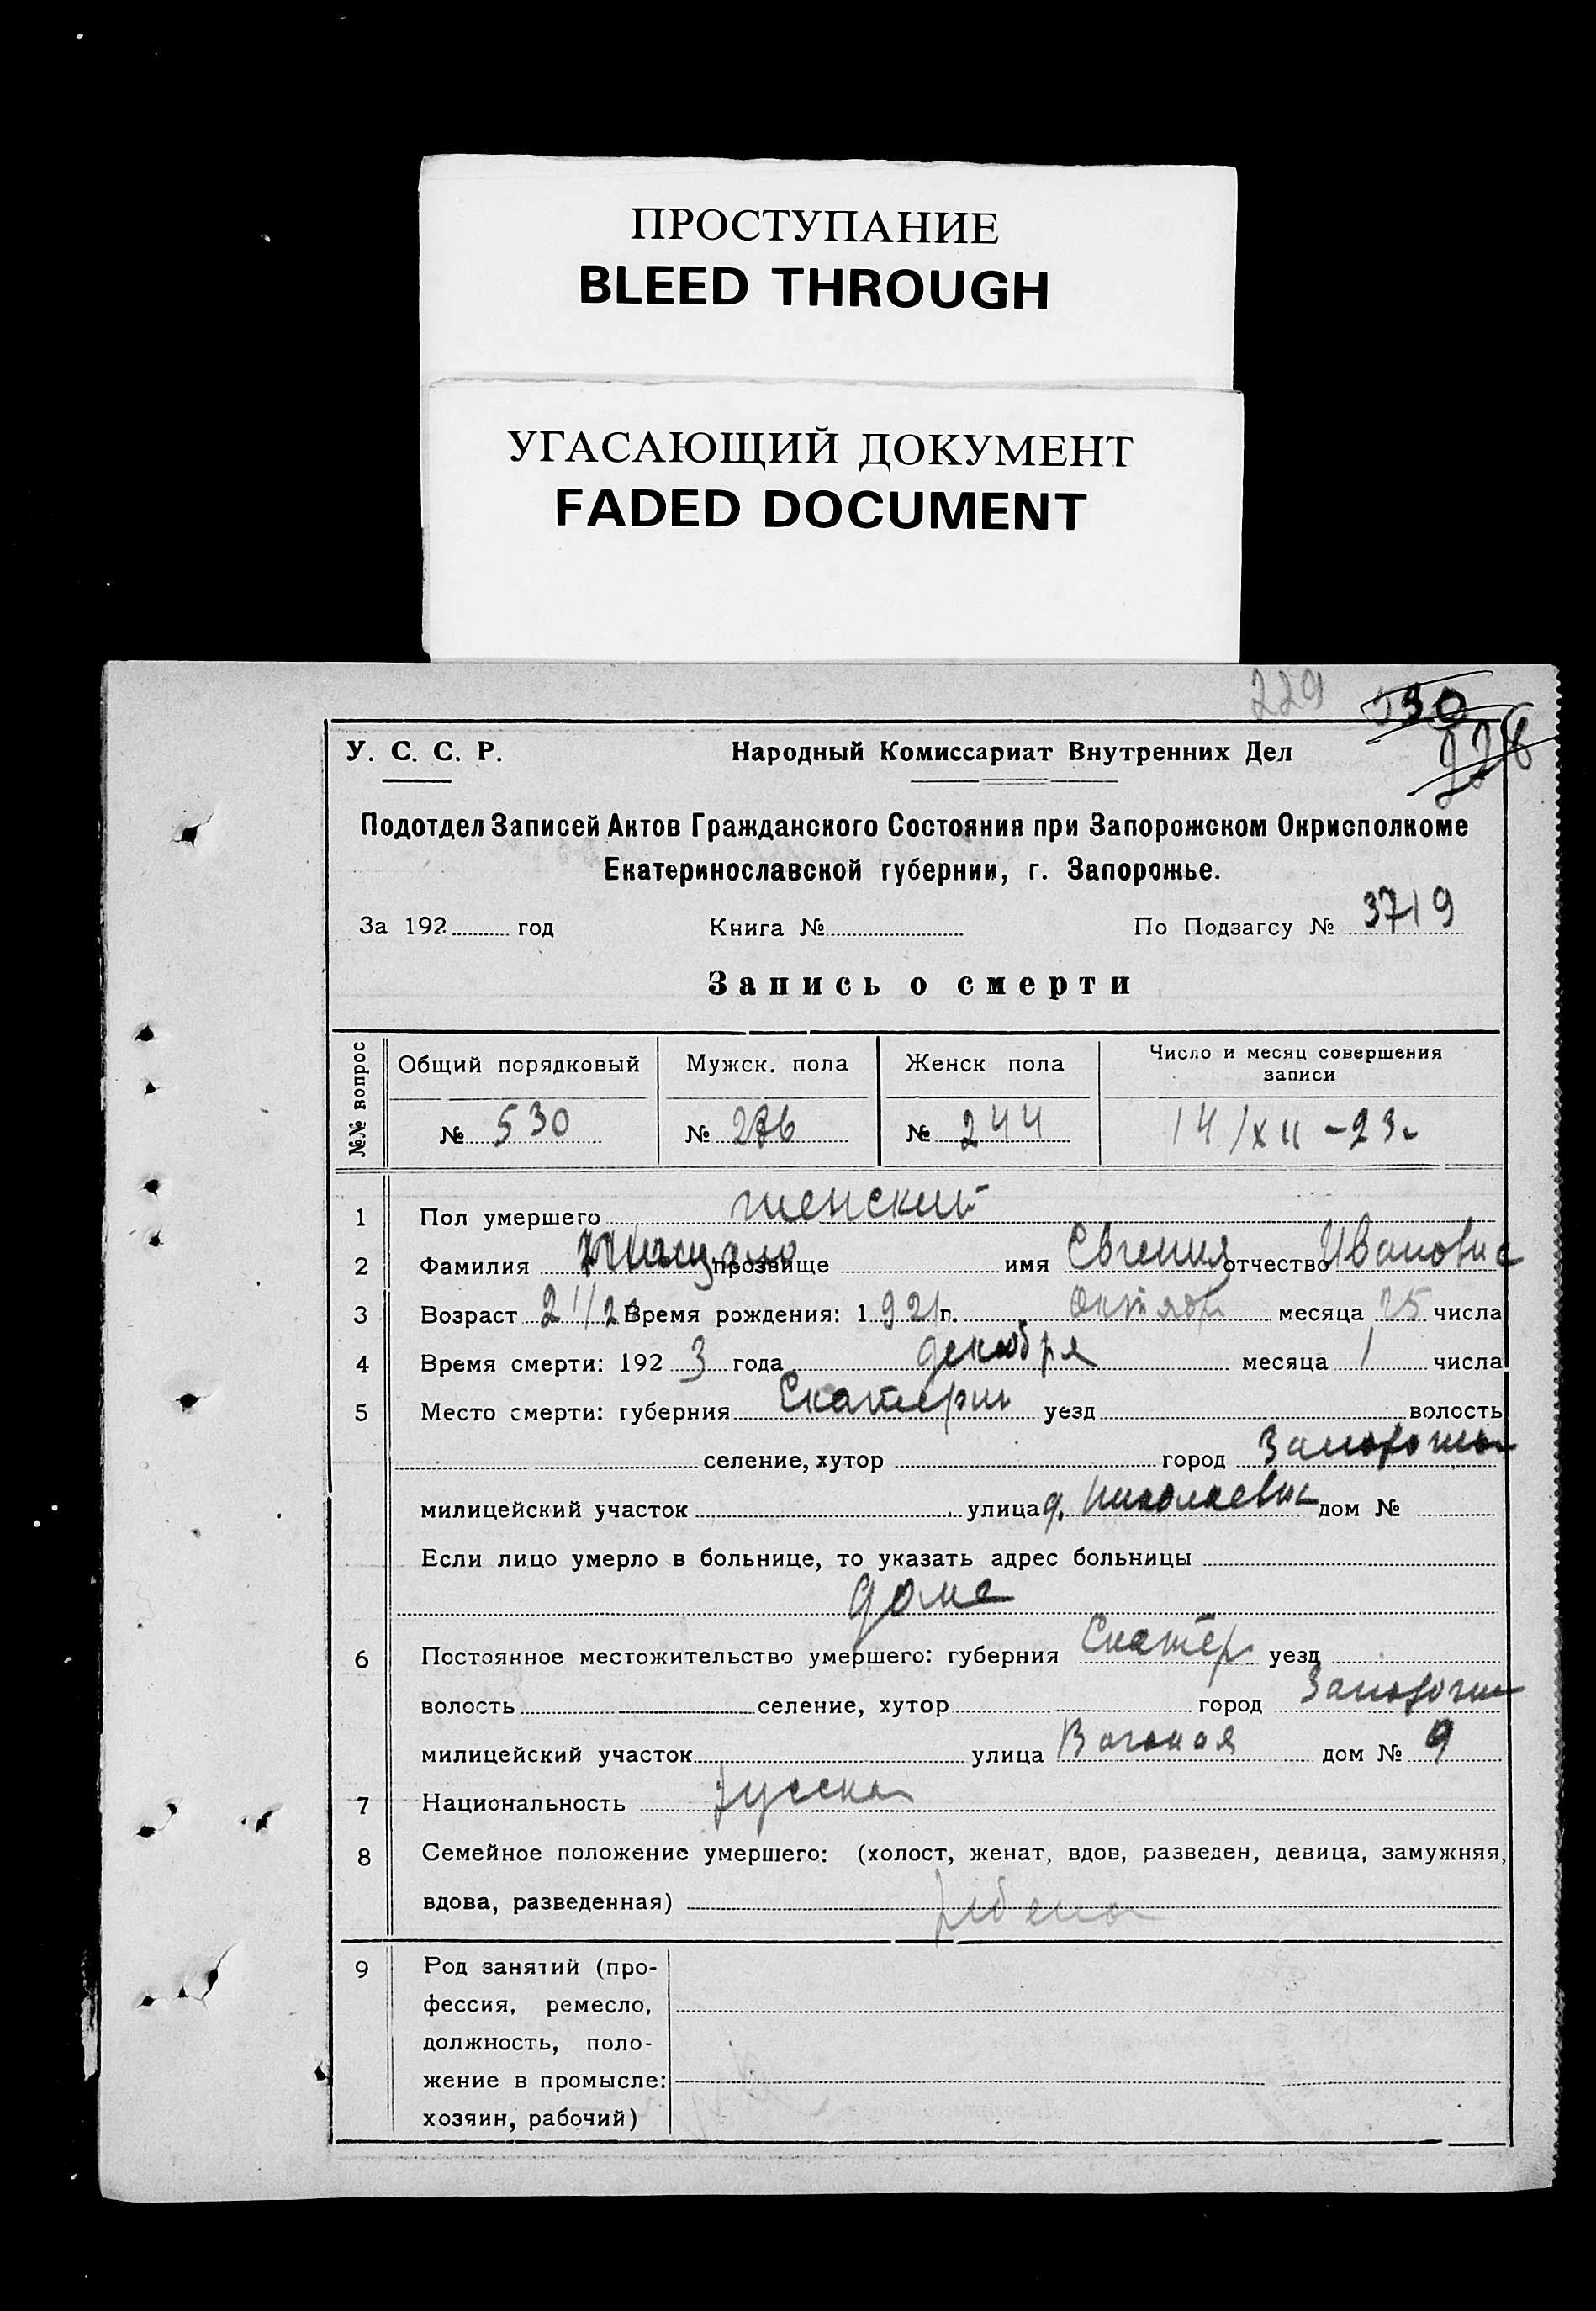 ПРОСТУПАНИЕ
BLEED THROUGH
УГАСАЮЩИЙ ДОКУМЕНТ
FADED DOCUMENT
229 530
228
У. С. С. Р. Народный Комиссариат Внутренних Дел
Подотдел Записей Актов Гражданского Состояния при Запорожском Окрисполкоме
Екатеринославской губернии, г. Запорожье.
За 192 год Книга № По Подзагсу № 3719
Запись о смерти
№№ вопрос Общий порядковый Мужск. пола Женск пола Число и месяц совершения записи
№ 530 № 286 № 244 14/XII -23.
1 Пол умершего женский
2 Фамилия прозвище имя Евгения отчество Ивановна
3 Возраст 2 1/2 Время рождения: 1921 г. Октября месяца 25 числа
4 Время смерти: 1923 года декабря месяца 1 числа
5 Место смерти: губерния Екатерин уезд волость
селение, хутор город Запорожье
милицейский участок улица д. Николаевка дом №
Если лицо умерло в больнице, то указать адрес больницы
дома
6 Постоянное местожительство умершего: губерния Екатер уезд
волость селение, хутор город Запорожье
милицейский участок улица дом № 9
7 Национальность русская
8 Семейное положение умершего: (холост, женат, вдов, разведен, девица, замужняя,
вдова, разведенная) ребенок
9 Род занятий (про-
фессия, ремесло,
должность, поло-
жение в промысле:
хозяин, рабочий)